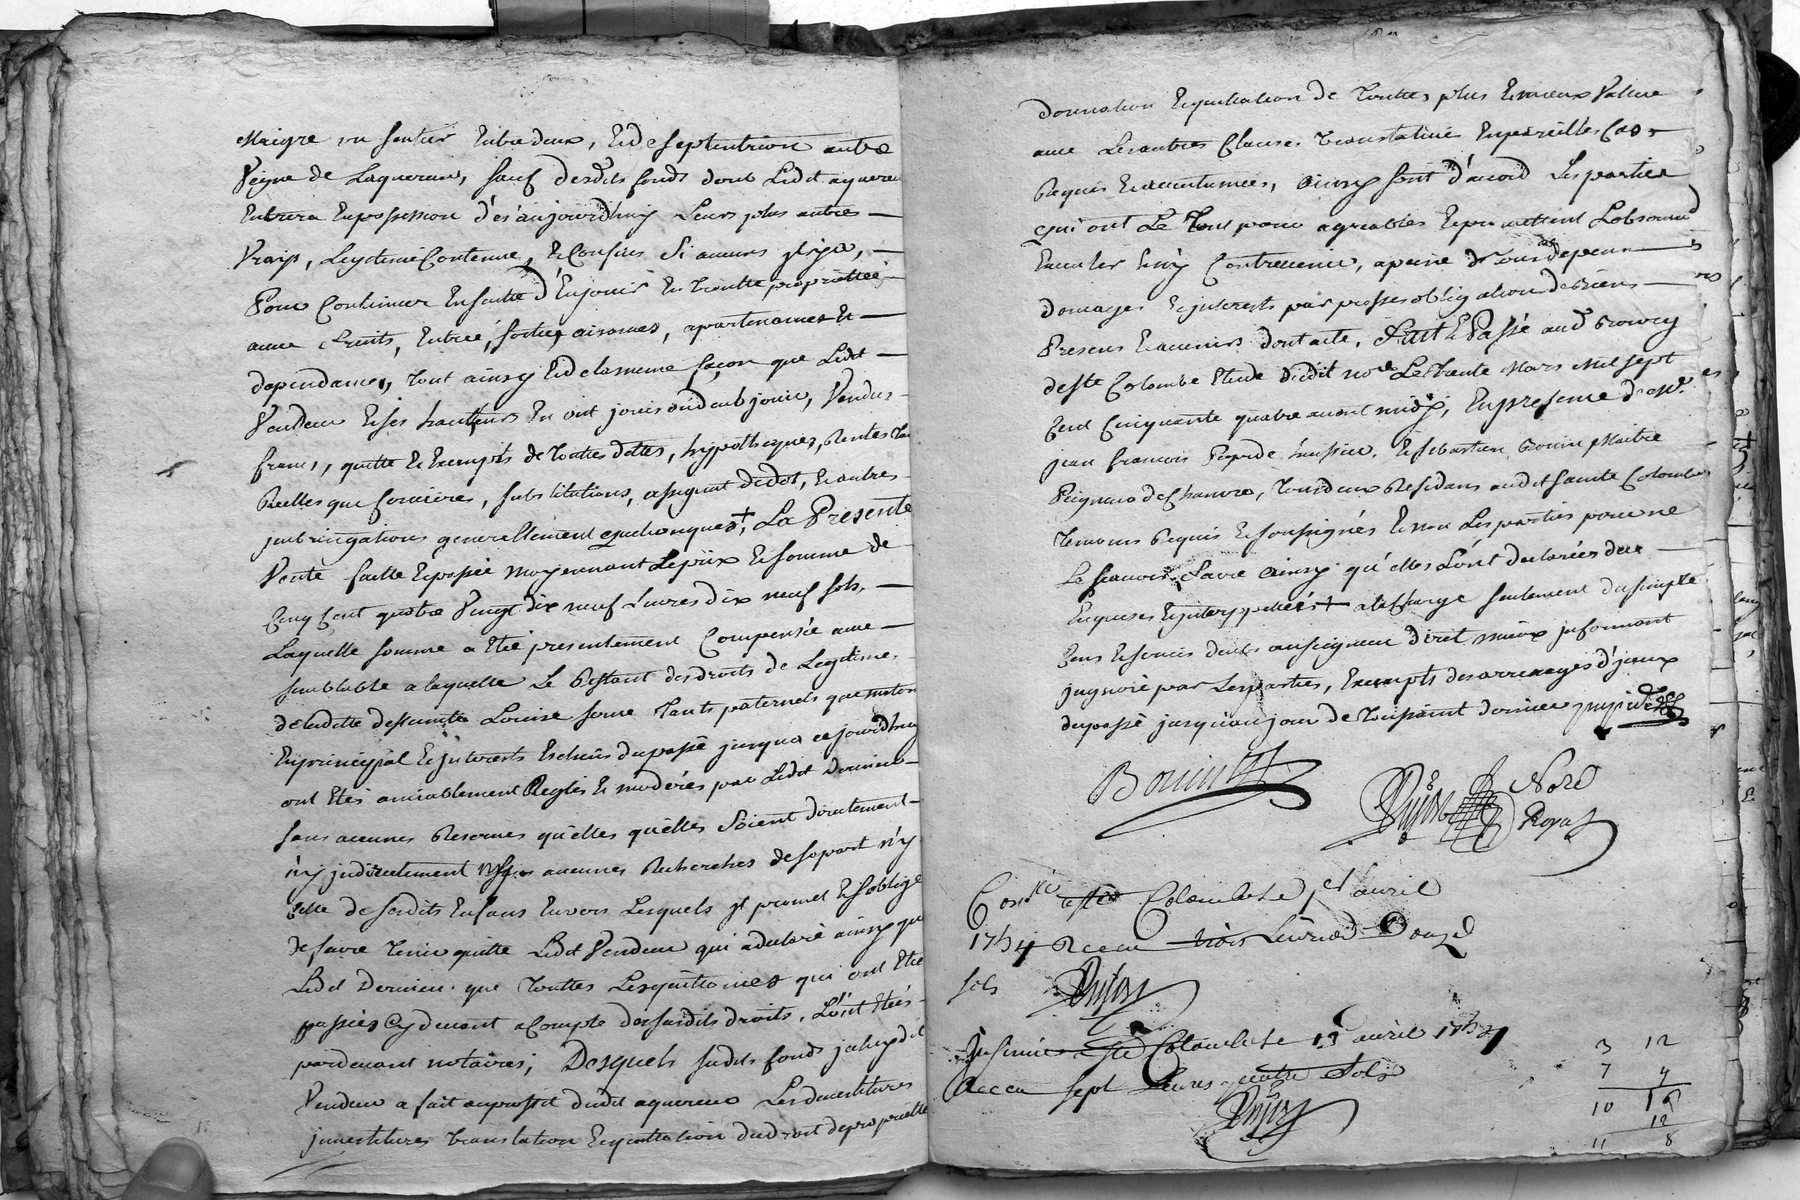 Maigre un sentier Entredeux, Et de septentrion autre
Vigne de Laquereur, sauf desdits fonds dont Ledit aquereur
Entrera En possession d'es aujourd'huy Leurs plus autres
Vrays, Legitime Contenue, & Confins Si aucuns yl y a,
Pour Continuer Ensuitte d'En jouir En Toutte proprietté
avec droits, Entrée, sorties aisances, apartenances Et
dependances, tout ainsy Et de la meme façon que Ledit
Vendeur Et ses hauteurs En ont jouis ou deub jouir, Vendus
francs, quitte Et Exempts de Touttes dettes, hypotheques, Rentes
Reelles que foncières, substitutions, assignat de dot, Et autres
jmbrigations generallement quelconques +, La Presente
Vente faitte Et passée moyennant Le prix Et somme de
Cinq Cent quatre Vingt dix neuf Livres dix neuf sols,
Laquelle somme a Eté presentement Compensée avec
semblable a laquelle Le Restant des droits de Legitime
de Laditte deffuncte Louise serve Tants paternels que maternels
En principal Et jnterests Escheus du passé jusqu'a ce jourd'huy
ont Etés amiablement Reglés Et moderés par Ledit Dernier
sans aucunes Reserves qu'elles qu'elles soient directement
n'y jndirectement aucunes Recherches de sa part n'y
Celle de sesdits Enfans Envers Lesquels jl promet Et s'oblige
de faire Tenir quitte Ledit Vendeur qui a declaré ainsy que
Ledit Dernier que Touttes Les quittances qui ont Eté
passées Cy devant a Compte desdsusdits droits, L'ont Etés
pardevant notaires; Desquels susdits fonds jcelluy dit
Vendeur a fait au proffit dudit aquereur Les devestitures
jnvestitures Translation Et quittation du droit de proprietté
Donnation Et quittation de Touttes plus Et mieux Value
avec Les autres Clauses Translatives En pareilles Cas
Requis Et accoutumées, ainsy sont d'acord Les parties
qui ont Le Tout pour agreables Et promettent L'observer
Et n'y Contrevenir, a peine de Tous depens
domages Et jnterests par presses obligation de biens
Presens Et avenirs dont acte, Fait Et Passé aud Bourg
de Ste Colombe Etude dudit nore Le Trente Mars mil sept
Cent Cinquante quatre avant midy, En presence de Mre
jean francois huissier, Et sebastien Bonin Maitre
Peigneur de Chanvre, Tous deux Residans audit sainte Colombe
Temoins Requis Et soussignés Et non Les parties pour ne
Le scavoir faire ainsy qu'elles L'ont declarées deüe
Enquises Et jnterppellées + a la Charge seulement du simple
Cens Et servis deubs au seigneur direct mieux jnformant
jgnoré par Les parties, Exempts des arrerages d'jceux
du passé jusqu'au jour de Toussaint dernier
Bonin
Pujos Nore
Royal
Con.lé a Ste Colombe Le 1er avril
1754 Receu trois Livres Douze
sols Pujos
Jnsinué a Ste Colombe Le 13 avril 1754
Receu sept Livres quatre sols
Pujos
3 12
7 4
10 16
12
11 8